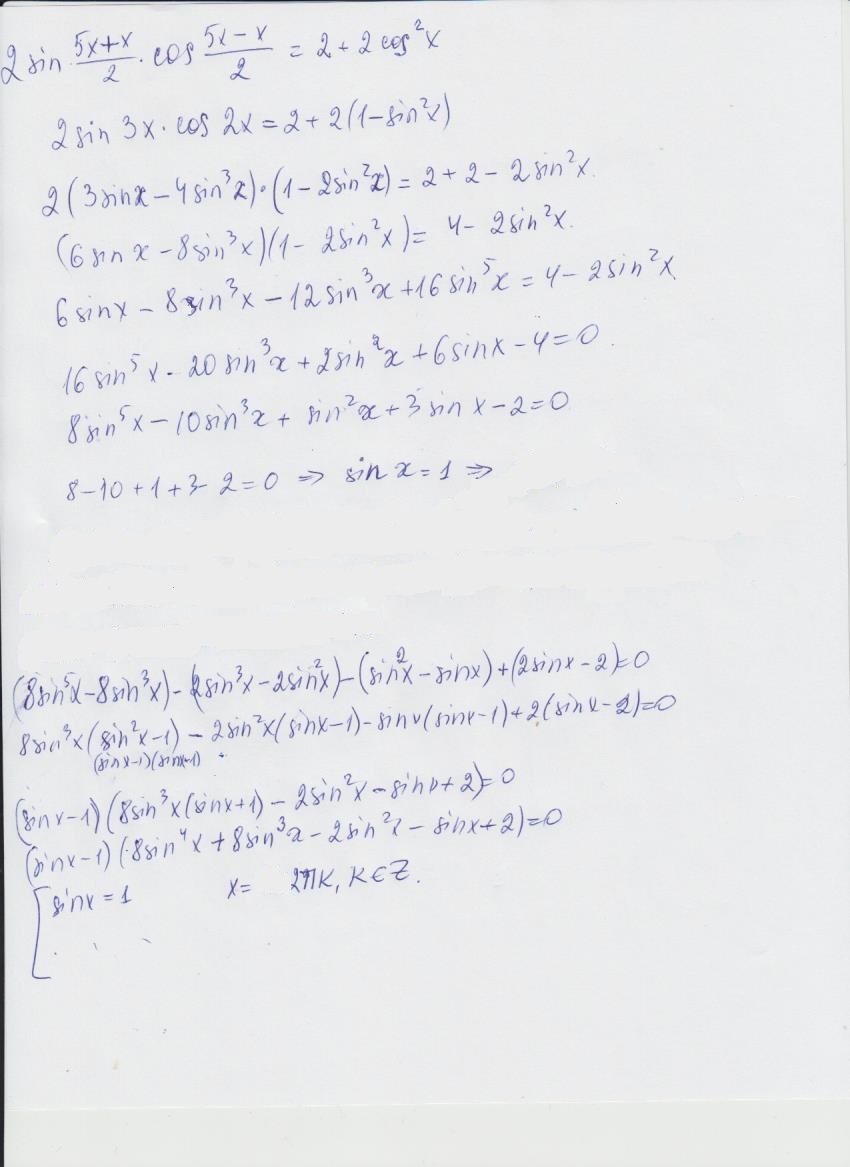 2 sin (5x+x)/2 · cos (5x-x)/2 = 2 + 2 cos²x
2 sin 3x · cos 2x = 2 + 2(1-sin²x)
2(3sinx - 4sin³x)·(1-2sin²x) = 2 + 2 - 2sin²x.
(6 sin x - 8sin³x)(1- 2sin²x) = 4- 2sin²x.
6 sinx - 8sin³x - 12sin³x + 16 sin⁵x = 4 - 2sin²x
16 sin⁵x - 20sin³x + 2sin²x + 6sinx - 4 = 0.
8sin⁵x - 10sin³x + sin²x + 3 sin x - 2 = 0
8-10+1+3-2=0 ⇒ sin x = 1 ⇒
(8sin⁵x - 8sin³x) - (2sin³x - 2sin²x) - (sin²x - sinx) + (2sinx - 2)=0
8sin³x(sin²x-1) - 2sin²x(sinx-1) - sinx(sinx-1) + 2(sinx-2)=0
(sinx-1)(sinx+1)
(sinx-1)(8sin³x(sinx+1) - 2sin²x - sinx+2)=0
(sinx-1)(8sin⁴x + 8sin³x - 2sin²x - sinx+2)=0
[ sinx = 1 x= 2πK, K∈Z.